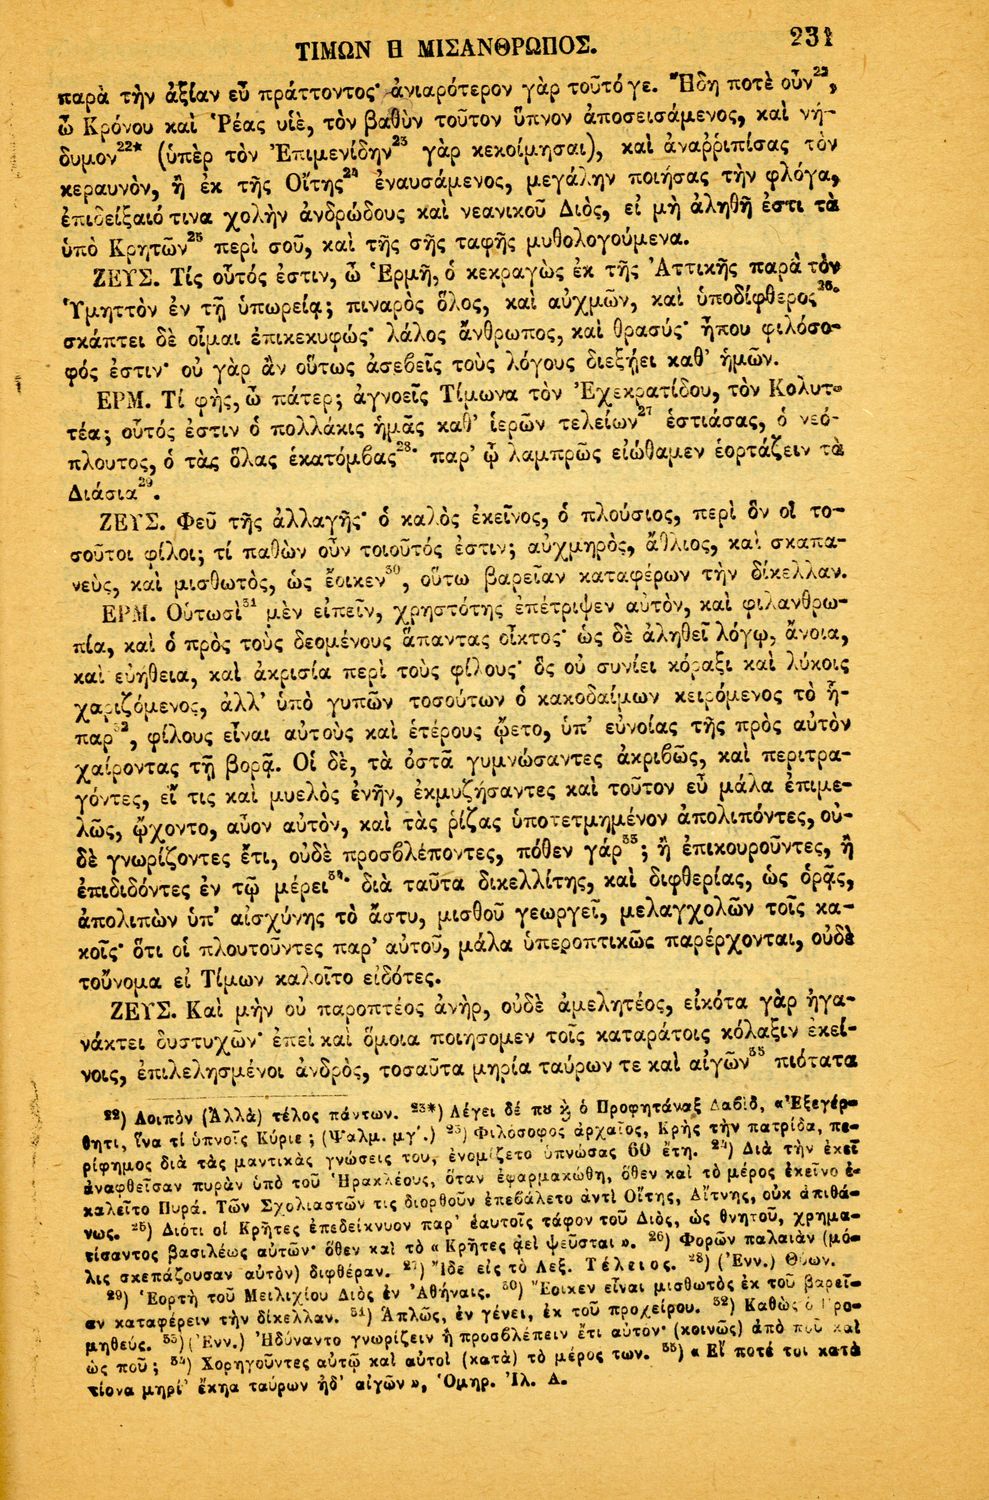 ΤΙΜΩΝ Η ΜΙΣΑΝΘΡΩΠΟΣ. 231
παρὰ τὴν ἀξίαν εὖ πράττοντος· ἀνιαρότερον γὰρ τοῦτό γε. Ἤδη ποτὲ οὖν²²,
ὦ Κρόνου καὶ Ῥέας υἱὲ, τὸν βαθὺν τοῦτον ὕπνον ἀποσεισάμενος, καὶ νή-
δυμον²²* (ὑπὲρ τὸν Ἐπιμενίδην²³ γὰρ κεκοίμησαι), καὶ ἀναῤῥιπίσας τὸν
κεραυνὸν, ἢ ἐκ τῆς Οἴτης²⁴ ἐναυσάμενος, μεγάλην ποιήσας τὴν φλόγα,
ἐπιδείξαιό τινα χολὴν ἀνδρώδους καὶ νεανικοῦ Διὸς, εἰ μὴ ἀληθῆ ἐστι τὰ
ὑπὸ Κρητῶν²⁵ περὶ σοῦ, καὶ τῆς σῆς ταφῆς μυθολογούμενα.
ΖΕΥΣ. Τίς οὗτός ἐστιν, ὦ Ἑρμῆ, ὁ κεκραγὼς ἐκ τῆς Ἀττικῆς παρὰ τὸν
Ὑμηττὸν ἐν τῇ ὑπωρείᾳ; πιναρὸς ὅλος, καὶ αὐχμῶν, καὶ ὑποδίφθερος²⁶.
σκάπτει δὲ οἶμαι ἐπικεκυφώς· λάλος ἄνθρωπος, καὶ θρασύς· ἦπου φιλόσο-
φός ἐστιν· οὐ γὰρ ἂν οὕτως ἀσεβεῖς τοὺς λόγους διεξῄει καθ' ἡμῶν.
ΕΡΜ. Τί φὴς, ὦ πάτερ; ἀγνοεῖς Τίμωνα τὸν Ἐχεκρατίδου, τὸν Κολυτ-
τέα; οὗτός ἐστιν ὁ πολλάκις ἡμᾶς καθ' ἱερῶν τελείων²⁷ ἑστιάσας, ὁ νεό-
πλουτος, ὁ τὰς ὅλας ἑκατόμβας²⁸· παρ' ᾧ λαμπρῶς εἰώθαμεν ἑορτάζειν τὰ
Διάσια²⁹.
ΖΕΥΣ. Φεῦ τῆς ἀλλαγῆς· ὁ καλὸς ἐκεῖνος, ὁ πλούσιος, περὶ ὃν οἱ το-
σοῦτοι φίλοι; τί παθὼν οὖν τοιοῦτός ἐστιν; αὐχμηρὸς, ἄθλιος, καὶ σκαπα-
νεὺς, καὶ μισθωτὸς, ὡς ἔοικεν³⁰, οὕτω βαρεῖαν καταφέρων τὴν δίκελλαν.
ΕΡΜ. Οὑτωσὶ³¹ μὲν εἰπεῖν, χρηστότης ἐπέτριψεν αὐτὸν, καὶ φιλανθρω-
πία, καὶ ὁ πρὸς τοὺς δεομένους ἅπαντας οἶκτος· ὡς δὲ ἀληθεῖ λόγῳ, ἄνοια,
καὶ εὐήθεια, καὶ ἀκρισία περὶ τοὺς φίλους· ὃς οὐ συνίει κόραξι καὶ λύκοις
χαριζόμενος, ἀλλ' ὑπὸ γυπῶν τοσούτων ὁ κακοδαίμων κειρόμενος τὸ ἧ-
παρ³², φίλους εἶναι αὐτοὺς καὶ ἑτέρους ᾤετο, ὑπ' εὐνοίας τῆς πρὸς αὐτὸν
χαίροντας τῇ βορᾷ. Οἱ δὲ, τὰ ὀστᾶ γυμνώσαντες ἀκριβῶς, καὶ περιτρα-
γόντες, εἴ τις καὶ μυελὸς ἐνῆν, ἐκμυζήσαντες καὶ τοῦτον εὖ μάλα ἐπιμε-
λῶς, ᾤχοντο, αὖον αὐτὸν, καὶ τὰς ῥίζας ὑποτετμημένον ἀπολιπόντες, οὐ-
δὲ γνωρίζοντες ἔτι, οὐδὲ προσβλέποντες, πόθεν γάρ³³; ἢ ἐπικουροῦντες, ἢ
ἐπιδιδόντες ἐν τῷ μέρει³⁴· διὰ ταῦτα δικελλίτης, καὶ διφθερίας, ὡς ὁρᾷς,
ἀπολιπὼν ὑπ' αἰσχύνης τὸ ἄστυ, μισθοῦ γεωργεῖ, μελαγχολῶν τοῖς κα-
κοῖς· ὅτι οἱ πλουτοῦντες παρ' αὐτοῦ, μάλα ὑπεροπτικῶς παρέρχονται, οὐδὲ
τοὔνομα εἰ Τίμων καλοῖτο εἰδότες.
ΖΕΥΣ. Καὶ μὴν οὐ παροπτέος ἀνὴρ, οὐδὲ ἀμελητέος, εἰκότα γὰρ ἠγα-
νάκτει δυστυχῶν· ἐπεὶ καὶ ὅμοια ποιησομεν τοῖς καταράτοις κόλαξιν ἐκεί-
νοις, ἐπιλελησμένοι ἀνδρὸς, τοσαῦτα μηρία ταύρων τε καὶ αἰγῶν³⁵ πιότατα
²²) Λοιπὸν (Ἀλλὰ) τέλος πάντων. ²³*) Λέγει δέ που καὶ ὁ Προφητάναξ Δαβὶδ, «Ἐξεγέρ-
θητι, ἵνα τί ὑπνοῖς Κύριε; (Ψαλμ. μγ´.) ²³) Φιλόσοφος ἀρχαῖος, Κρὴς τὴν πατρίδα, πε-
ρίφημος διὰ τὰς μαντικὰς γνώσεις του, ἐνομίζετο ὑπνώσας 60 ἔτη. ²⁴) Διὰ τὴν ἐκεῖ
ἀναφθεῖσαν πυρὰν ὑπὸ τοῦ Ἡρακλέους, ὅταν ἐφαρμακώθη, ὅθεν καὶ τὸ μέρος ἐκεῖνο ἐ-
καλεῖτο Πυρά. Τῶν Σχολιαστῶν τις διορθοῦν ἐπεβάλετο ἀντὶ Οἴτης, Αἴτνης, οὐκ ἀπιθά-
νως. ²⁵) Διότι οἱ Κρῆτες ἐπεδείκνυον παρ' ἑαυτοῖς τάφον τοῦ Διὸς, ὡς θνητοῦ, χρημα-
τίσαντος βασιλέως αὐτῶν· ὅθεν καὶ τὸ «Κρῆτες ἀεὶ ψεῦσται». ²⁶) Φορῶν παλαιὰν (μό-
λις σκεπάζουσαν αὐτὸν) διφθέραν. ²⁷) Ἴδε εἰς τὸ Λεξ. Τέλειος. ²⁸) (Ἐνν.) Θύων.
²⁹) Ἑορτὴ τοῦ Μειλιχίου Διὸς ἐν Ἀθήναις. ³⁰) Ἔοικεν εἶναι μισθωτὸς ἐκ τοῦ βαρεῖ-
αν καταφέρειν τὴν δίκελλαν. ³¹) Ἁπλῶς, ἐν γένει, ἐκ τοῦ προχείρου. ³²) Καθὼς ὁ Προ-
μηθεύς. ³³) (Ἐνν.) Ἠδύναντο γνωρίζειν ἢ προσβλέπειν ἔτι αὐτόν· (κοινῶς) ἀπὸ ποῦ καὶ
ὡς ποῦ; ³⁴) Χορηγοῦντες αὐτῷ καὶ αὐτοὶ (κατὰ) τὸ μέρος των. ³⁵) «Εἴ ποτέ τοι κατὰ
πίονα μηρί' ἔκηα ταύρων ἠδ' αἰγῶν», Ὁμηρ. Ἰλ. Α.